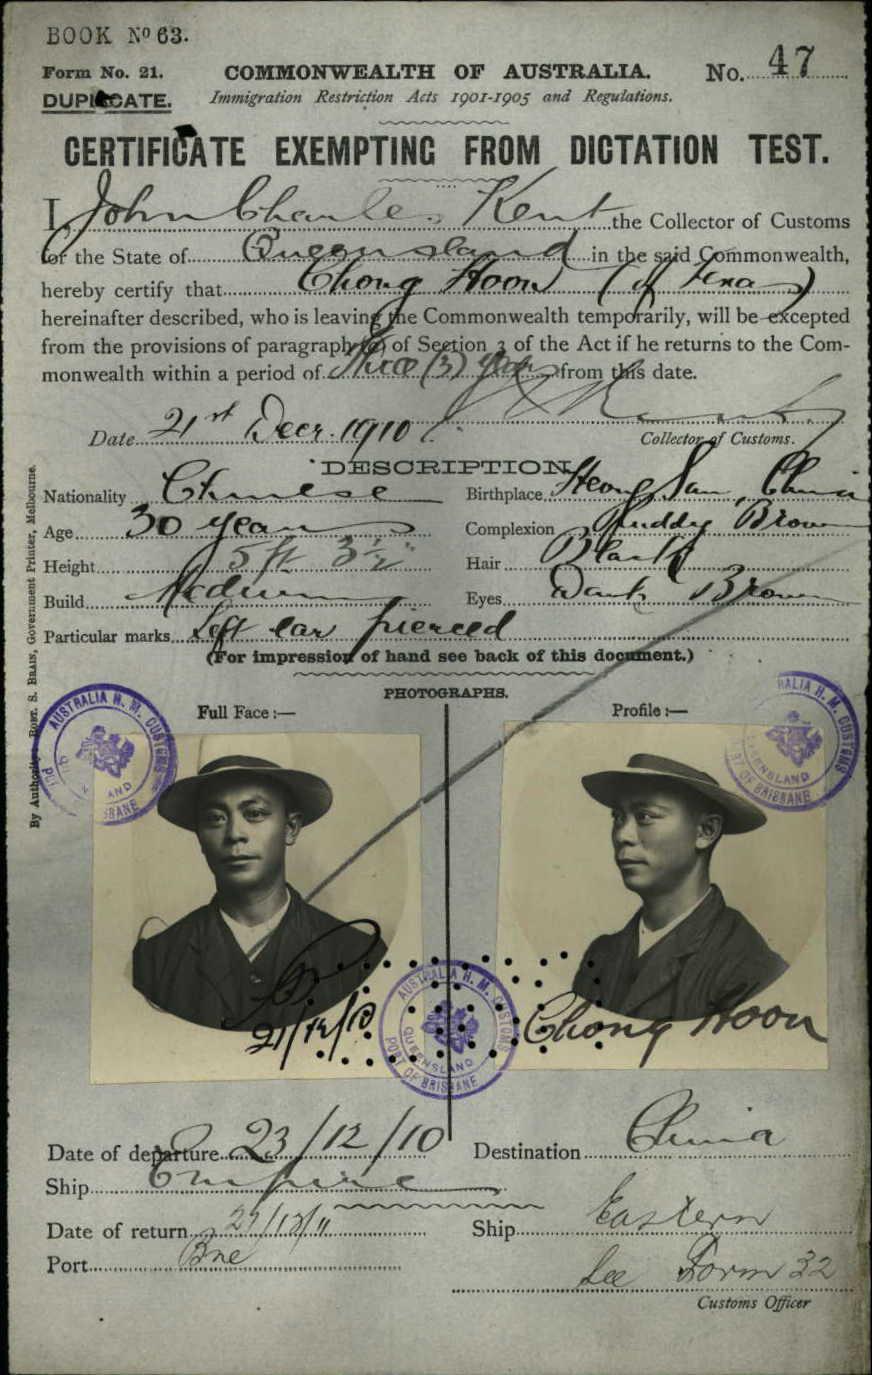 BOOK No 63.
Form No. 21. COMMONWEALTH OF AUSTRALIA. No. 47
DUPLICATE. Immigration Restriction Acts 1901-1905 and Regulations.
CERTIFICATE EXEMPTING FROM DICTATION TEST.
I, John Charles Kent the Collector of Customs
for the State of Queensland in the said Commonwealth,
hereby certify that Chong Hoon (of
hereinafter described, who is leaving the Commonwealth temporarily, will be excepted
from the provisions of paragraph (a) of Section 3 of the Act if he returns to the Com-
monwealth within a period of Three (3) years from this date.
Date 21st Decr. 1910
Collector of Customs.
DESCRIPTION
Nationality Chinese Birthplace Heong San, China
Age 30 years Complexion Ruddy Brown
Height 5 ft 3 ½" Hair Black
Build Medium Eyes Dark Brown
Particular marks Left ear pierced
(For impression of hand see back of this document.)
PHOTOGRAPHS.
Full Face:— Profile:—
AUSTRALIA H. M. CUSTOMS QUEENSLAND PORT OF BRISBANE
AUSTRALIA H. M. CUSTOMS QUEENSLAND PORT OF BRISBANE
21/12/10
AUSTRALIA H. M. CUSTOMS QUEENSLAND PORT OF BRISBANE
Chong Hoon
Date of departure 23/12/10 Destination China
Ship Empire
Date of return 27/12/11 Ship Eastern
Port Bne See Form 32
Customs Officer
By Authority: ROBT. S. BRAIN, Government Printer, Melbourne.